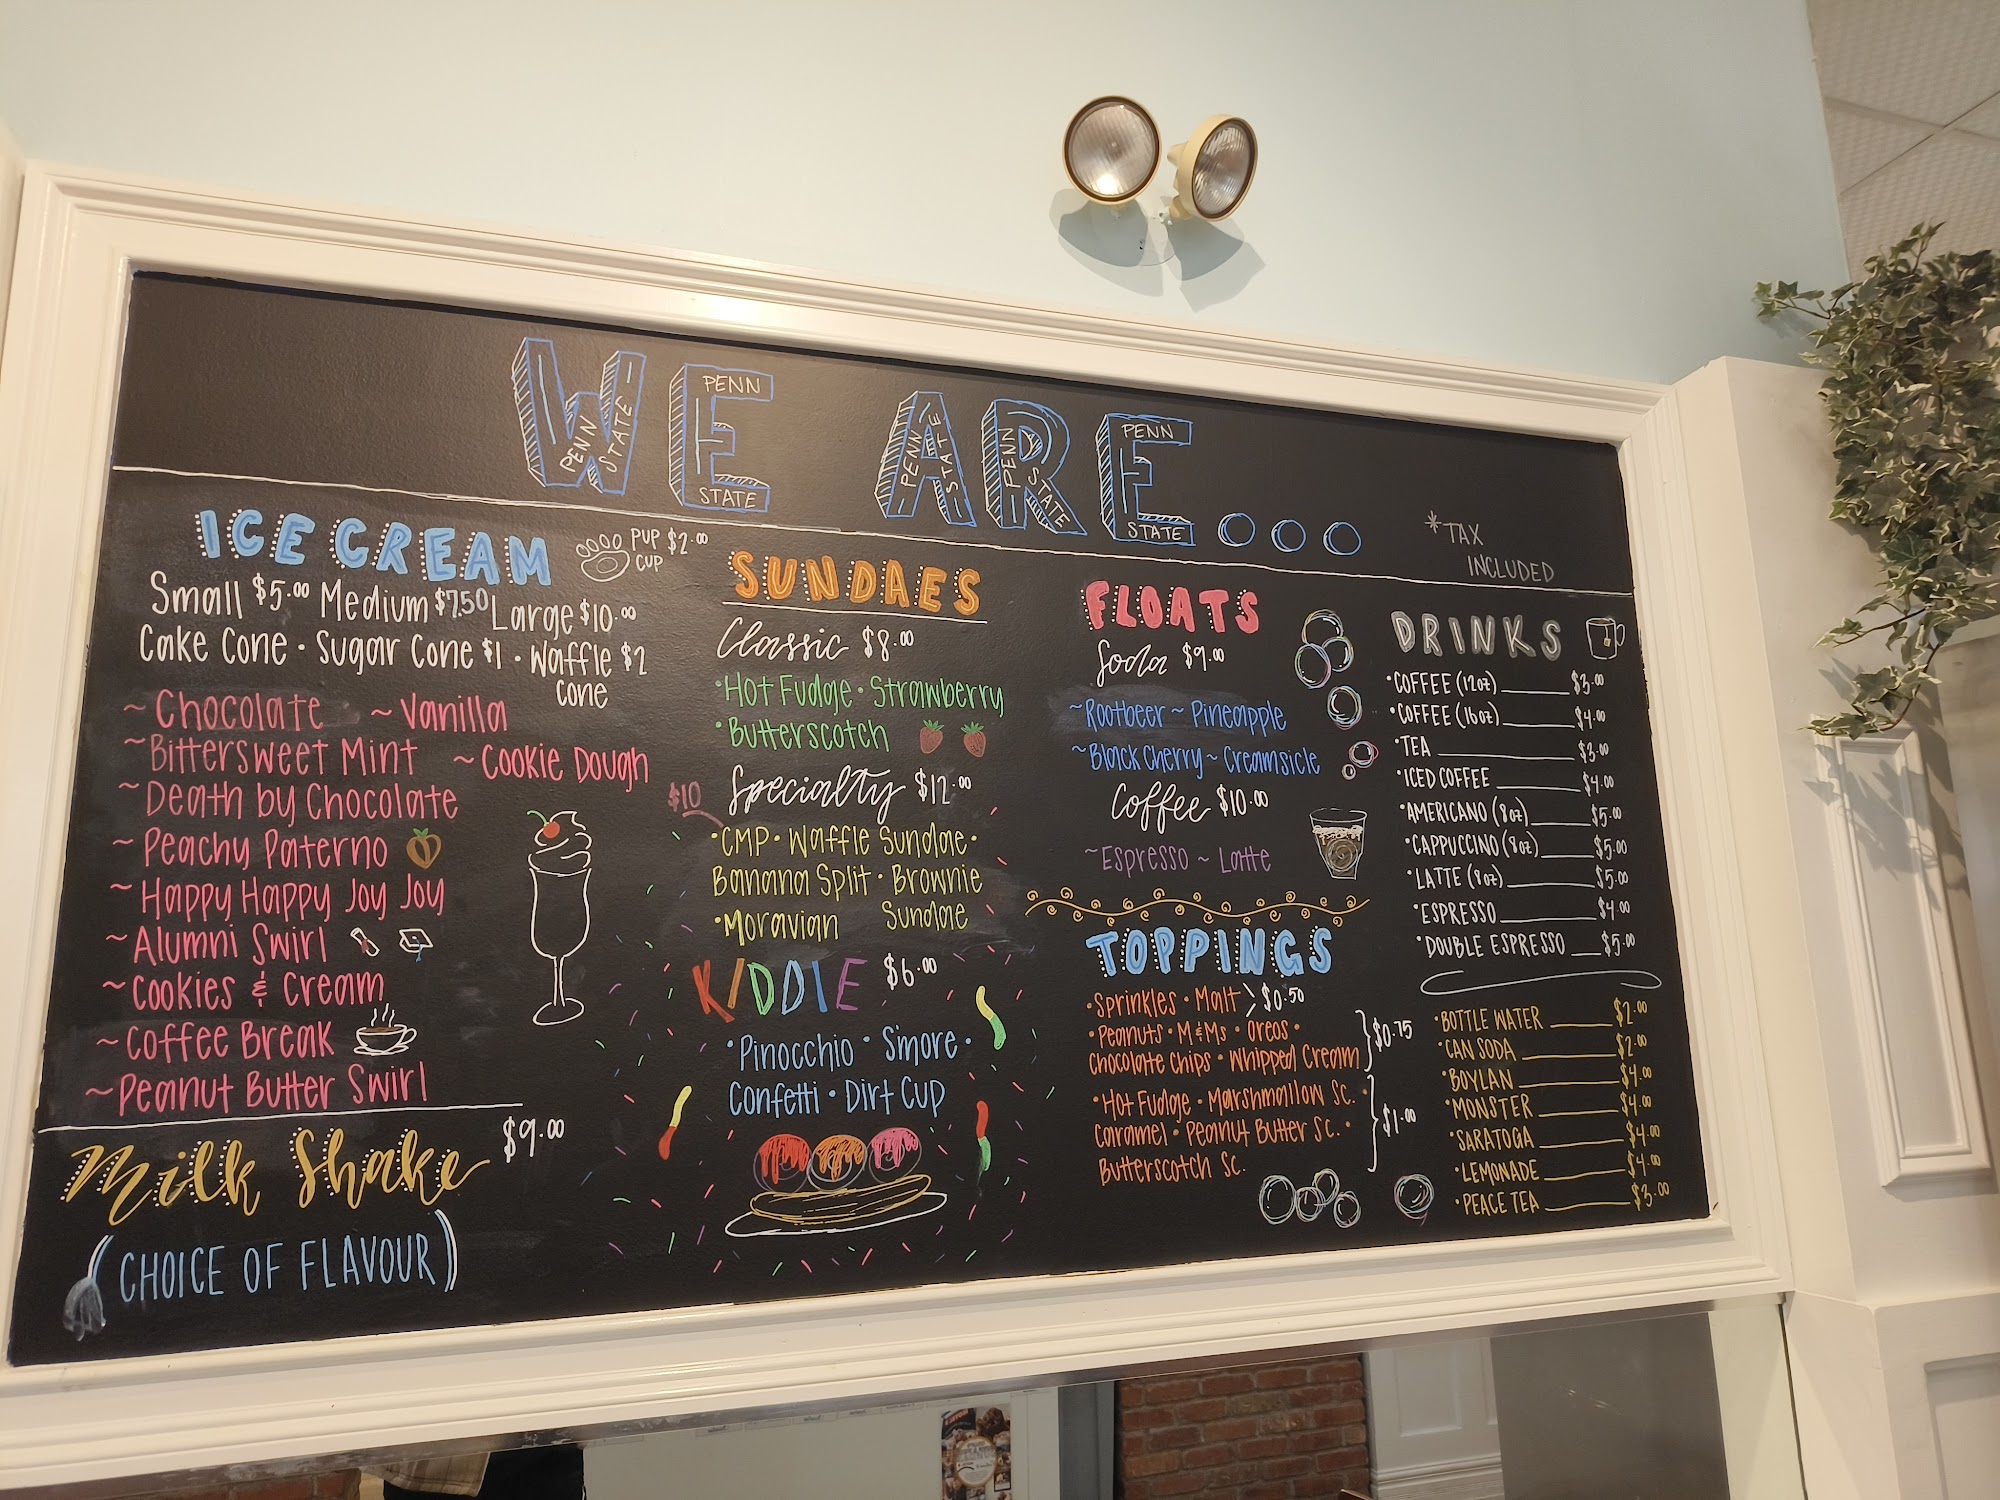 WE ARE...
PENN STATE
PENN STATE
PENN STATE
PENN STATE
PENN STATE
*TAX
INCLUDED
ICE CREAM
PUP CUP $2.00
Small $5.00 Medium $7.50 Large $10.00
Cake Cone • Sugar Cone $1 • Waffle $2
Cone
~ Chocolate ~ Vanilla
~ Bittersweet Mint ~ Cookie Dough
~ Death by Chocolate
~ Peachy Paterno
~ Happy Happy Joy Joy
~ Alumni Swirl
~ Cookies & Cream
~ Coffee Break
~ Peanut Butter Swirl
Milk Shake $9.00
(CHOICE OF FLAVOUR)
SUNDAES
Classic $8.00
• Hot Fudge • Strawberry
• Butterscotch
Specialty $12.00
$10
• CMP • Waffle Sundae •
Banana Split • Brownie
• Moravian Sundae
KIDDIE $6.00
• Pinocchio • S'more •
Confetti • Dirt Cup
FLOATS
Soda $9.00
~ Rootbeer ~ Pineapple
~ Black Cherry ~ Creamsicle
Coffee $10.00
~ Espresso ~ Latte
TOPPINGS
• Sprinkles • Malt > $0.50
• Peanuts • M&Ms • Oreos •
Chocolate Chips • Whipped Cream } $0.75
• Hot Fudge • Marshmallow Sc. •
Caramel • Peanut Butter Sc. • } $1.00
Butterscotch Sc.
DRINKS
• COFFEE (12oz) $3.00
• COFFEE (16oz) $4.00
• TEA $3.00
• ICED COFFEE $4.00
• AMERICANO (8oz) $5.00
• CAPPUCCINO (8oz) $5.00
• LATTE (8oz) $5.00
• ESPRESSO $4.00
• DOUBLE ESPRESSO $5.00
• BOTTLE WATER $2.00
• CAN SODA $2.00
• BOYLAN $4.00
• MONSTER $4.00
• SARATOGA $4.00
• LEMONADE $4.00
• PEACE TEA $3.00